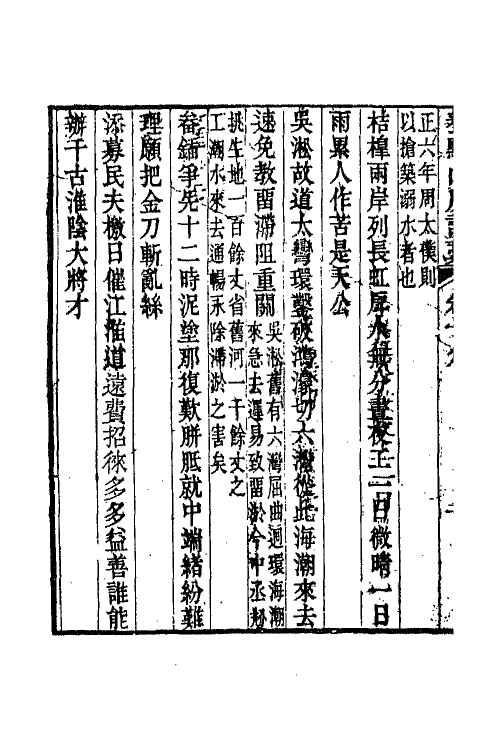 正六年周太僕則
以搶築溺水者也
桔橰兩岸列長虹戽水無分晝夜工二日微晴一日
雨累人作苦是天公
吳淞故道太彎環鑿破鴻濛切六灣從此海潮來去
速免教畱滯阻重關吳淞舊有六灣屈曲迴環海潮
來急去遲易致畱淤今中丞勘
挑生地一百餘丈省舊河一千餘丈之
工潮水來去通暢永除滯淤之害矣
畚鍤爭先十二時泥塗那復歎胼胝就中端緒紛難
理願把金刀斬亂絲
添募民夫檄日催江淮道遠費招徠多多益善誰能
辦千古淮陰大將才